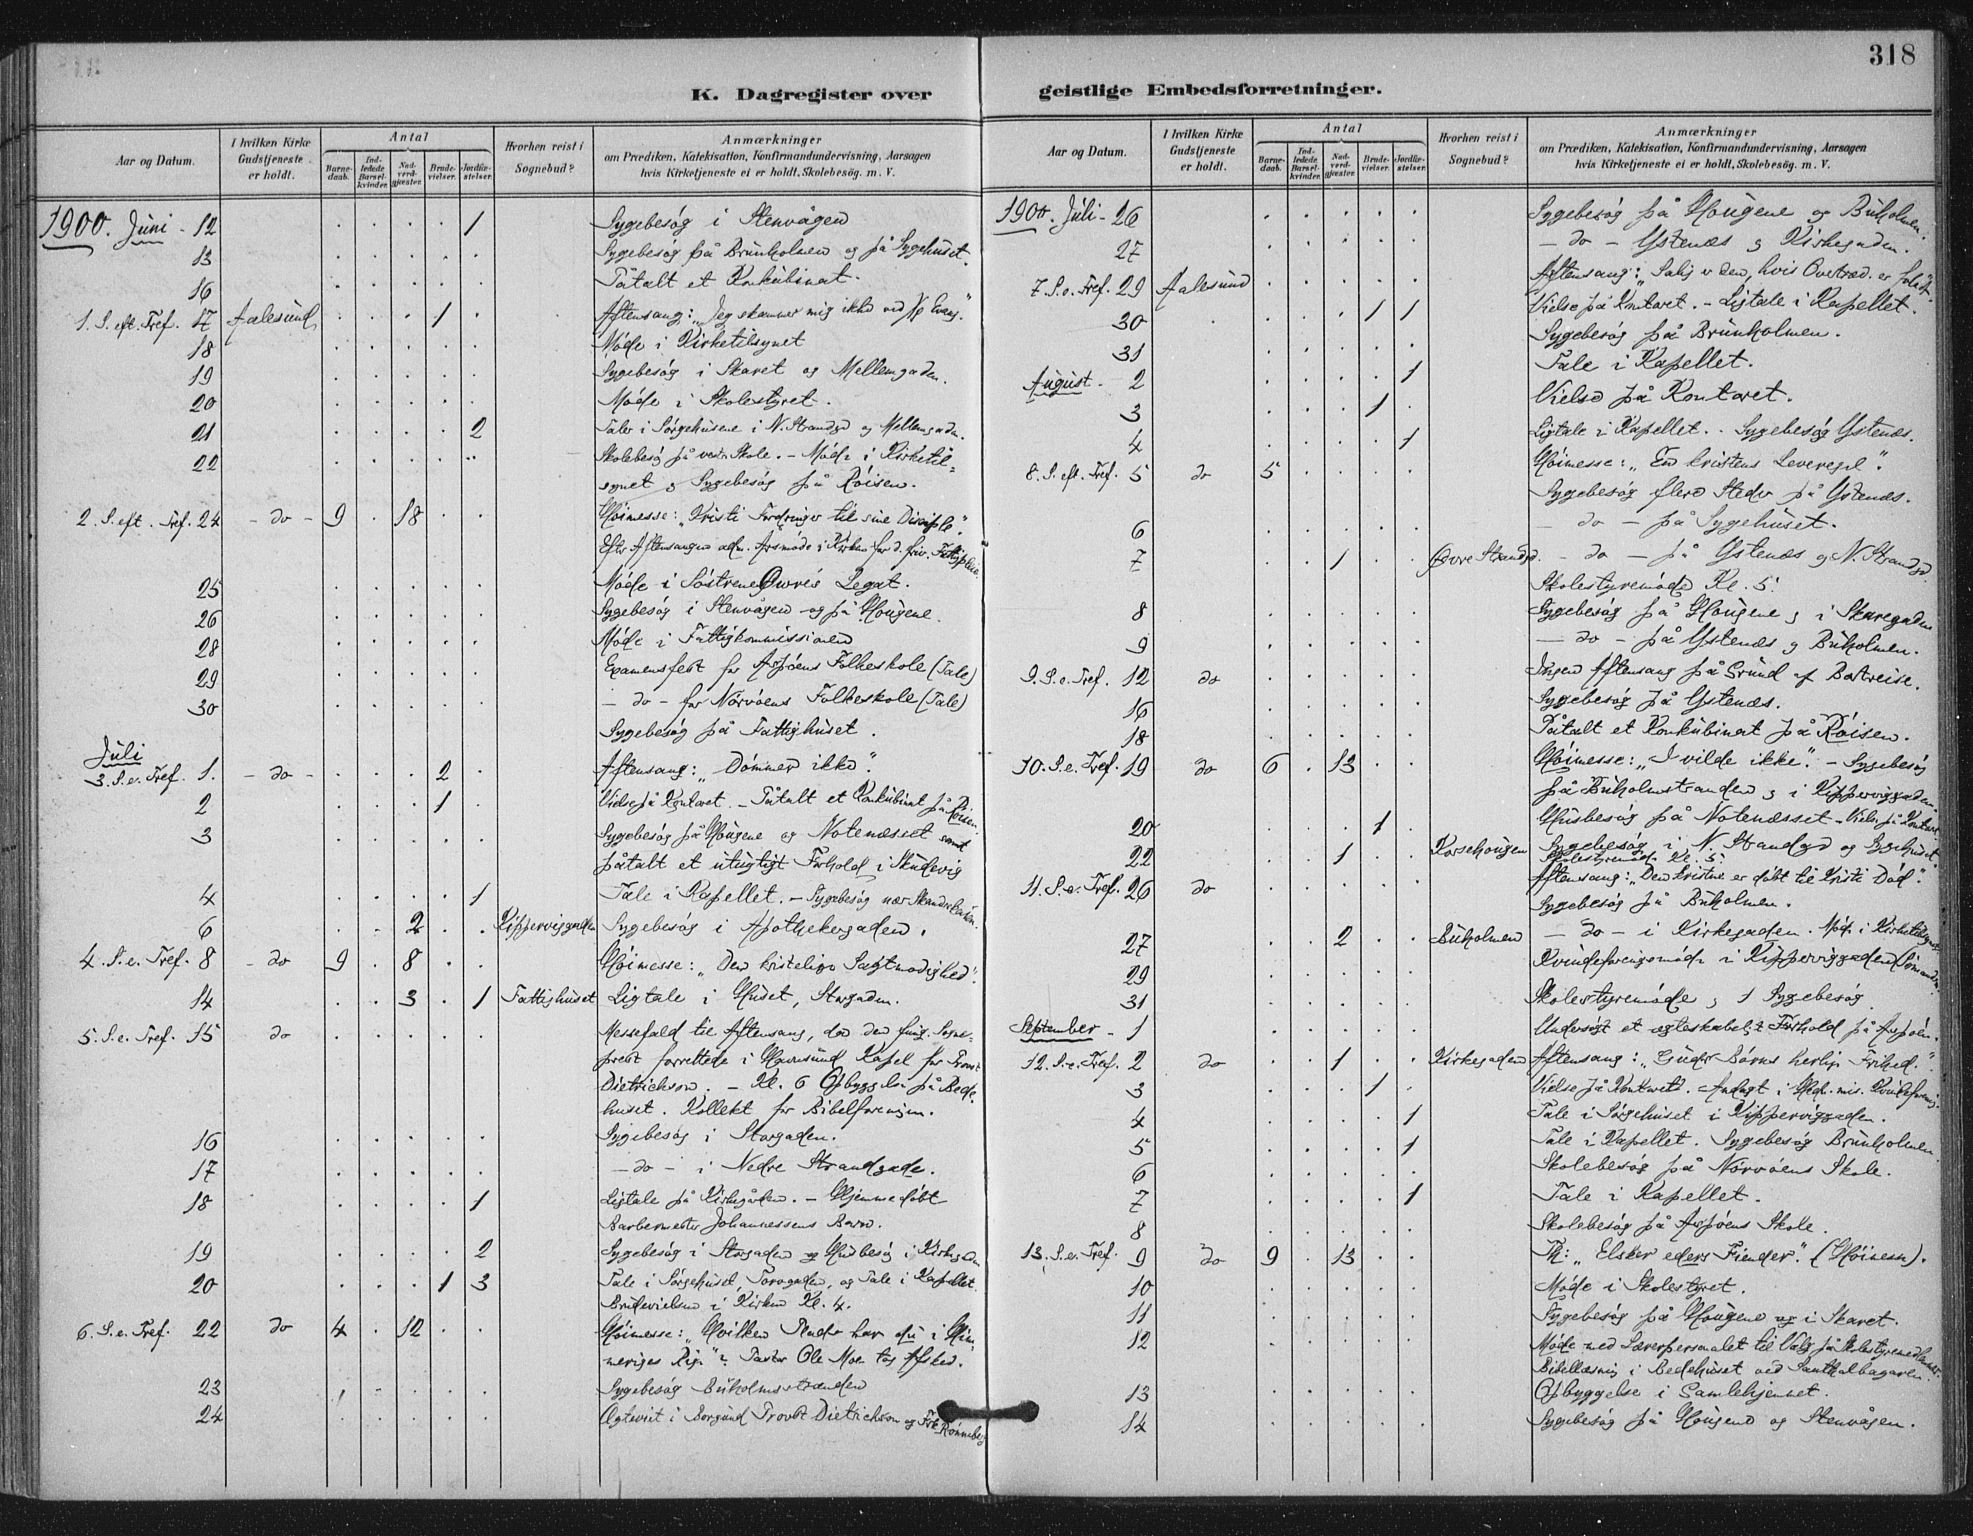 318
K. Dagregister over
geistlige Embedsforretninger.
Aar og Datum.
I hvilken Kirke Gudstjeneste er holdt.
Antal
Barne-daab.
Ind-ledede Barsel-kvinder.
Nad-verd-gjæster.
Brude-vielser.
Jordfæ-stelser.
Hvorhen reist i Sognebud?
Anmærkninger
om Prædiken, Katekisation, Konfirmandundervisning, Aarsagen
hvis Kirketjeneste ei er holdt, Skolebesög. m. V.
1900. Juni - 12 . . . . 1 Sygebesøg i Stenvågen
13 . . . . . Sygebesøg på Brunholmen og på Sygehuset.
16 . . . . . Påtalt et Konkubinat.
1. S. eft. Tref. 17 Aalesund . . . 1 . Aftensang: "Jeg skammer mig ikke ved Kr. Evang."
18 . . . . . Møde i Kirketilsynet
19 . . . . . Sygebesøg i Skaret og Mellemgaden.
20 . . . . . Møde i Skolestyret.
21 . . . . 2 Taler i Sørgehusene i N. Strandgd og Mellemgadn.
22 . . . . . Skolebesøg på vestre Skole. - Møde i Kirketil-
synet og Sygebesøg på Røisen.
2. S. eft. Tref. 24 - do - 9 . 18 . . Høimesse: "Kristi Fordringer til sine Disciple"
Efter Aftensangen adm. Årsmøde i Kirken for d. friv. Fattigpleie.
25 . . . . . Møde i Søstrene Owrés Legat.
26 . . . . . Sygebesøg i Stenvågen og på Hougene.
28 . . . . . Møde i Fattigkommissionen
29 . . . . . Examensfest for Aspøens Folkeskole (Tale)
30 . . . . . - do - for Nørvøens Folkeskole (Tale)
Sygebesøg på Fattighuset.
Juli
3. S. e. Tref. 1. - do - . . . 2 . Aftensang: "Dømmer ikke".
2 . . . 1 . Vielse på Kontoret. - Påtalt et Konkubinat på Røisen.
3 . . . . . Sygebesøg på Hougene og Notenæsset samt
påtalt et utugtigt Forhold i Skudevig
4 . . . . 1 Tale i Kapellet. - Sygebesøg nær
6 . . 2 . . Kipperviggaden Sygebesøg i Apothekergaden.
4. S. e. Tref. 8 - do 9 . 8 . . Høimesse: "Den kristelige Sagtmodighed".
14 . . 3 . 1 Fattighuset Ligtale i Huset, Storgaden.
5. S. e. Tref. 15 do . . . . . Messefald til Aftensang, da den fung. Sogne-
prest forrettede i Havnsund Kapel for Provst
Dietrichson. - Kl. 6 Opbyggelse på Bede-
huset. Kollekt for Bibelforeningen.
16 . . . . . Sygebesøg i Storgaden.
17 . . . . . - do - i Nedre Strandgade.
18 . . . . 1 Ligtale på Kirkegården. - Hjemmedøbt
Barbermester Johannessens Barn.
19 . . . . 2 Sygebesøg i Storgaden og Husbesøg i Kirkegaden
20 . . . 1 3 Tale i Sørgehuset, og Tale i Kapellet.
Brudevielsen i Kirken Kl. 4.
6. S. e. Tref. 22 do 4 . 12 . . Høimesse: "Hvilken Plads har du i Him-
meriges Rige"? Pastor Ole Moe tog Afsked.
23 . . . . . Sygebesøg Buholmsstranden
24 . . . . . Ægteviet i Borgund Provst Dietrichson og Frk Rønneberg
Aar og Datum.
I hvilken Kirke Gudstjeneste er holdt.
Antal
Barne-daab.
Ind-ledede Barsel-kvinder.
Nad-verd-gjæster.
Brude-vielser.
Jordfæ-stelser.
Hvorhen reist i Sognebud?
Anmærkninger
om Prædiken, Katekisation, Konfirmandundervisning, Aarsagen
hvis Kirketjeneste ei er holdt, Skolebesög. m. V.
1900. Juli - 26 . . . . . Sygebesøg på Hougene og Buholmen.
27 . . . . . - do - Ystenæs og Kirkegaden.
7. S. e. Tref. 29 Aalesund . . . . . Aftensang: "Salig er den, hvis Overtræd. er forladt".
30 . . . 1 1 Vielse på Kontoret. - Ligtale i Kapellet.
31 . . . . . Sygebesøg på Brunholmen.
August - 2 . . . . 1 Tale i Kapellet.
3 . . . 1 . Vielse på Kontoret.
4 . . . . 1 Ligtale i Kapellet. - Sygebesøg Ystenæs.
8. S. eft. Tref. 5 do 5 . . . . Høimesse: "En kristens Leveregel".
Sygebesøg flere Steder på Ystenæs.
6 . . . . . - do - på Sygehuset.
7 . . 1 . . Øvre Strandgd. - do - på Ystenæs og N. Strandgd
Skolestyremøde Kl. 5.
8 . . . . . Sygebesøg på Hougene og i Skaregaden
9 . . . . . - do - på Ystenæs og Buholmen.
9. S. e. Tref. 12 do . . . . . Ingen Aftensang på Grund af Bortreise.
16 . . . . . Sygebesøg på Ystenæs.
18 . . . . . Påtalt et Konkubinat på Røisen.
10. S. e. Tref. 19 do 6 . 13 . . Høimesse: "I vilde ikke". - Sygebesøg
på Buholmstranden og i Kippervigaden.
20 . . . 1 . Husbesøg på Notenæsset - Vielse på Kontoret.
22 . . 1 . . Korsehougen Sygebesøg i N. Strandgd og Sygehuset.
Skolestyremøde Kl. 5.
11. S. e. Tref. 26 do . . . . . Aftensang: "Den kristne er døbt til Kristi Død".
Sygebesøg på Buholmen.
27 . . 2 . . Buholmen - do - i Kirkegaden. Møde i Kirketilsynet
29 . . . . . Kvindeforeningsmøde i Kippervigaden
31 . . . . . Skolestyremøde og 1 Sygebesøg
September - 1 . . . . . Undersøgt et ægteskabeligt Forhold på Aspøen.
12. S. e. Tref. 2 do . . 1 . . Kirkegaden Aftensang: "Guds Børns herlige Frihed."
3 . . . 1 . Vielse på Kontoret. Andagt i Hed. mis. Kvindeforening.
4 . . . . 1 Tale i Sørgehuset i Kippervigaden.
5 . . . . 1 Tale i Kapellet. Sygebesøg Brunholmen
6 . . . . . Skolebesøg på Nørvøens Skole.
7 . . . . 1 Tale i Kapellet.
8 . . . . . Skolebesøg på Aspøens Skole.
13. S. e. Tref. 9 do 9 . 13 . . Th: "Elsker eders Fiender". (Høimesse).
10 . . . . . Møde i Skolestyret.
11 . . . . . Sygebesøg på Hougene og i Skaret.
12 . . . . . Møde med Lærerpersonalet til Valg på Skolestyremedlemmer.
Bibellæsning i Bedehuset ved
13 . . . . . Opbyggelse i Samlehjemmet.
14 . . . . . Sygebesøg på Hougene og Stenvågen.